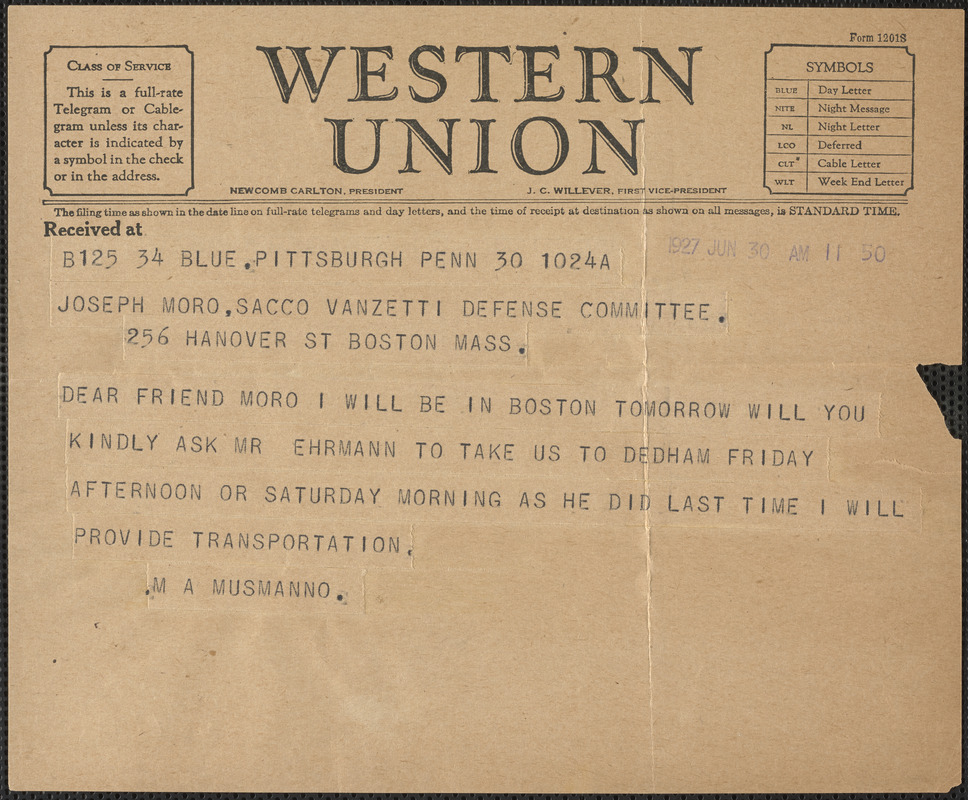 Form 1201S
CLASS OF SERVICE
This is a full-rate
Telegram or Cable-
gram unless its char-
acter is indicated by
a symbol in the check
or in the address.
WESTERN
UNION
NEWCOMB CARLTON, PRESIDENT
J. C. WILLEVER, FIRST VICE-PRESIDENT
SYMBOLS
BLUE Day Letter
NITE Night Message
NL Night Letter
LCO Deferred
CLT* Cable Letter
WLT Week End Letter
The filing time as shown in the date line on full-rate telegrams and day letters, and the time of receipt at destination as shown on all messages, is STANDARD TIME.
Received at
1927 JUN 30 AM 11 50
B125 34 BLUE.PITTSBURGH PENN 30 1024A
JOSEPH MORO,SACCO VANZETTI DEFENSE COMMITTEE.
256 HANOVER ST BOSTON MASS.
DEAR FRIEND MORO I WILL BE IN BOSTON TOMORROW WILL YOU
KINDLY ASK MR EHRMANN TO TAKE US TO DEDHAM FRIDAY
AFTERNOON OR SATURDAY MORNING AS HE DID LAST TIME I WILL
PROVIDE TRANSPORTATION.
.M A MUSMANNO.